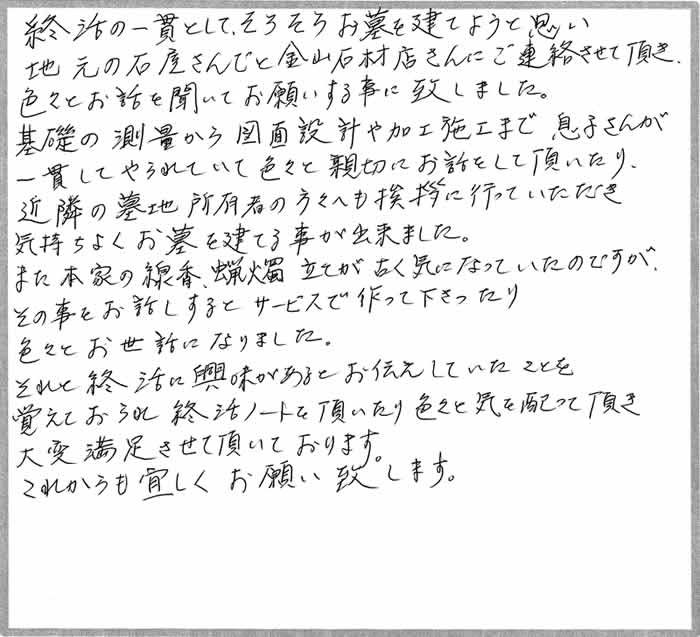 終活の一貫として、そろそろお墓を建てようと思い
地元の石屋さんでと金山石材店さんにご連絡させて頂き、
色々とお話を聞いてお願いする事に致しました。
基礎の測量から図面設計や加工施工まで、息子さんが
一貫してやられていて色々と親切にお話をして頂いたり、
近隣の墓地所有者の方々へも挨拶に行っていただき
気持ちよくお墓を建てる事が出来ました。
また本家の線香、蝋燭立てが古く気になっていたのですが、
その事をお話しするとサービスで作って下さったり
色々とお世話になりました。
それと終活に興味があるとお伝えしていたことを
覚えておられ終活ノートを頂いたり色々と気を配って頂き
大変満足させて頂いております。
これからも宜しくお願い致します。